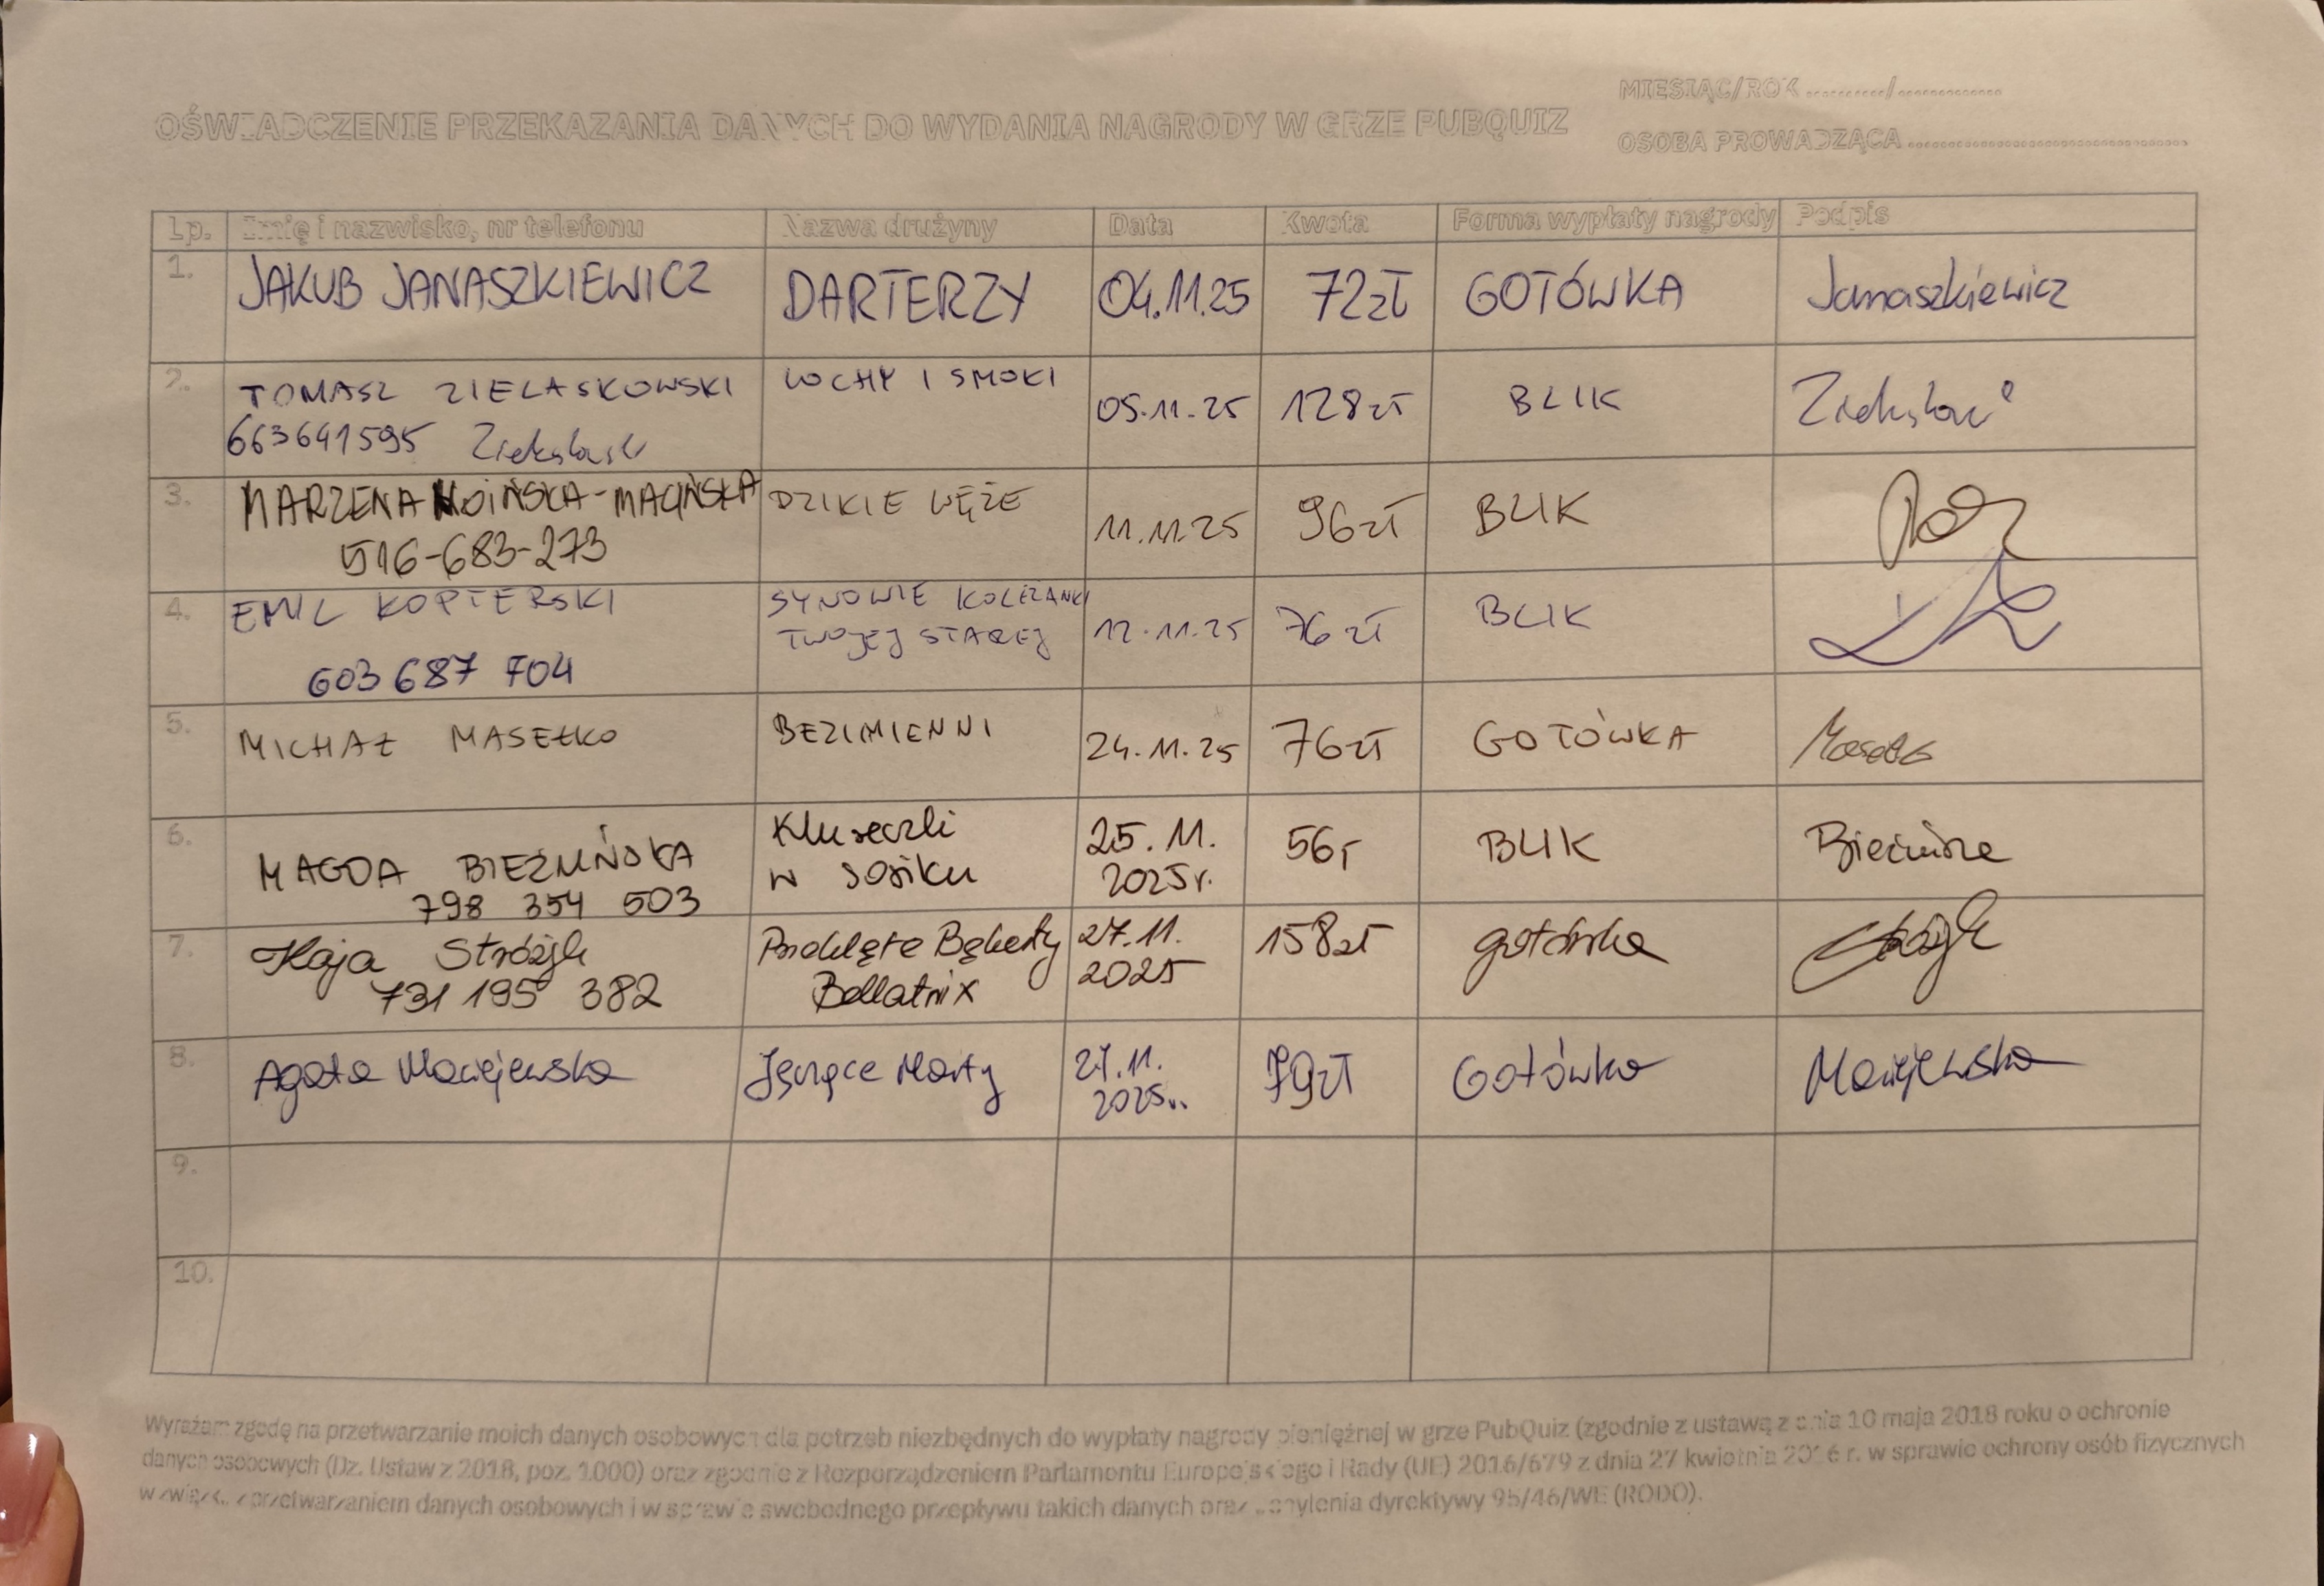 MIESIĄC/ROK ........../.............
OŚWIADCZENIE PRZEKAZANIA DANYCH DO WYDANIA NAGRODY W GRZE PUBQUIZ
OSOBA PROWADZĄCA ...................................
Lp. Imię i nazwisko, nr telefonu Nazwa drużyny Data Kwota Forma wypłaty nagrody Podpis
1. JAKUB JANASZKIEWICZ DARTERZY 04.11.25 72zł GOTÓWKA Janaszkiewicz
2. TOMASZ ZIELASKOWSKI LOCHY I SMOKI 05.11.25 128zł BLIK
663641595
3. MARZENA MACIŃSKA DZIKIE WĘŻE 11.11.25 96zł BLIK
516-683-273
4. EMIL KOPTERSKI SYNOWIE KOLEŻANKI TWOJEJ STAREJ 12.11.25 76zł BLIK
603 687 704
5. MICHAŁ MASEŁKO BEZIMIENNI 24.11.25 76zł GOTÓWKA
6. MAGDA BIEŻUŃSKA Kluseczki w sosiku 25.11.2025r. 56,- BLIK
798 354 503
7. Kaja Stróżyk Przeklęte Bękarty Bellatrix 27.11.2025 158zł gotówka Stróżyk
731 195 382
8. Agata Maciejewska Jęczące Marty 27.11.2025r. 79zł Gotówka Maciejewska
9.
10.
Wyrażam zgodę na przetwarzanie moich danych osobowych dla potrzeb niezbędnych do wypłaty nagrody pieniężnej w grze PubQuiz (zgodnie z ustawą z dnia 10 maja 2018 roku o ochronie
danych osobowych (Dz. Ustaw z 2018, poz. 1000) oraz zgodnie z Rozporządzeniem Parlamentu Europejskiego i Rady (UE) 2016/679 z dnia 27 kwietnia 2016 r. w sprawie ochrony osób fizycznych
w związku z przetwarzaniem danych osobowych i w sprawie swobodnego przepływu takich danych oraz uchylenia dyrektywy 95/46/WE (RODO).